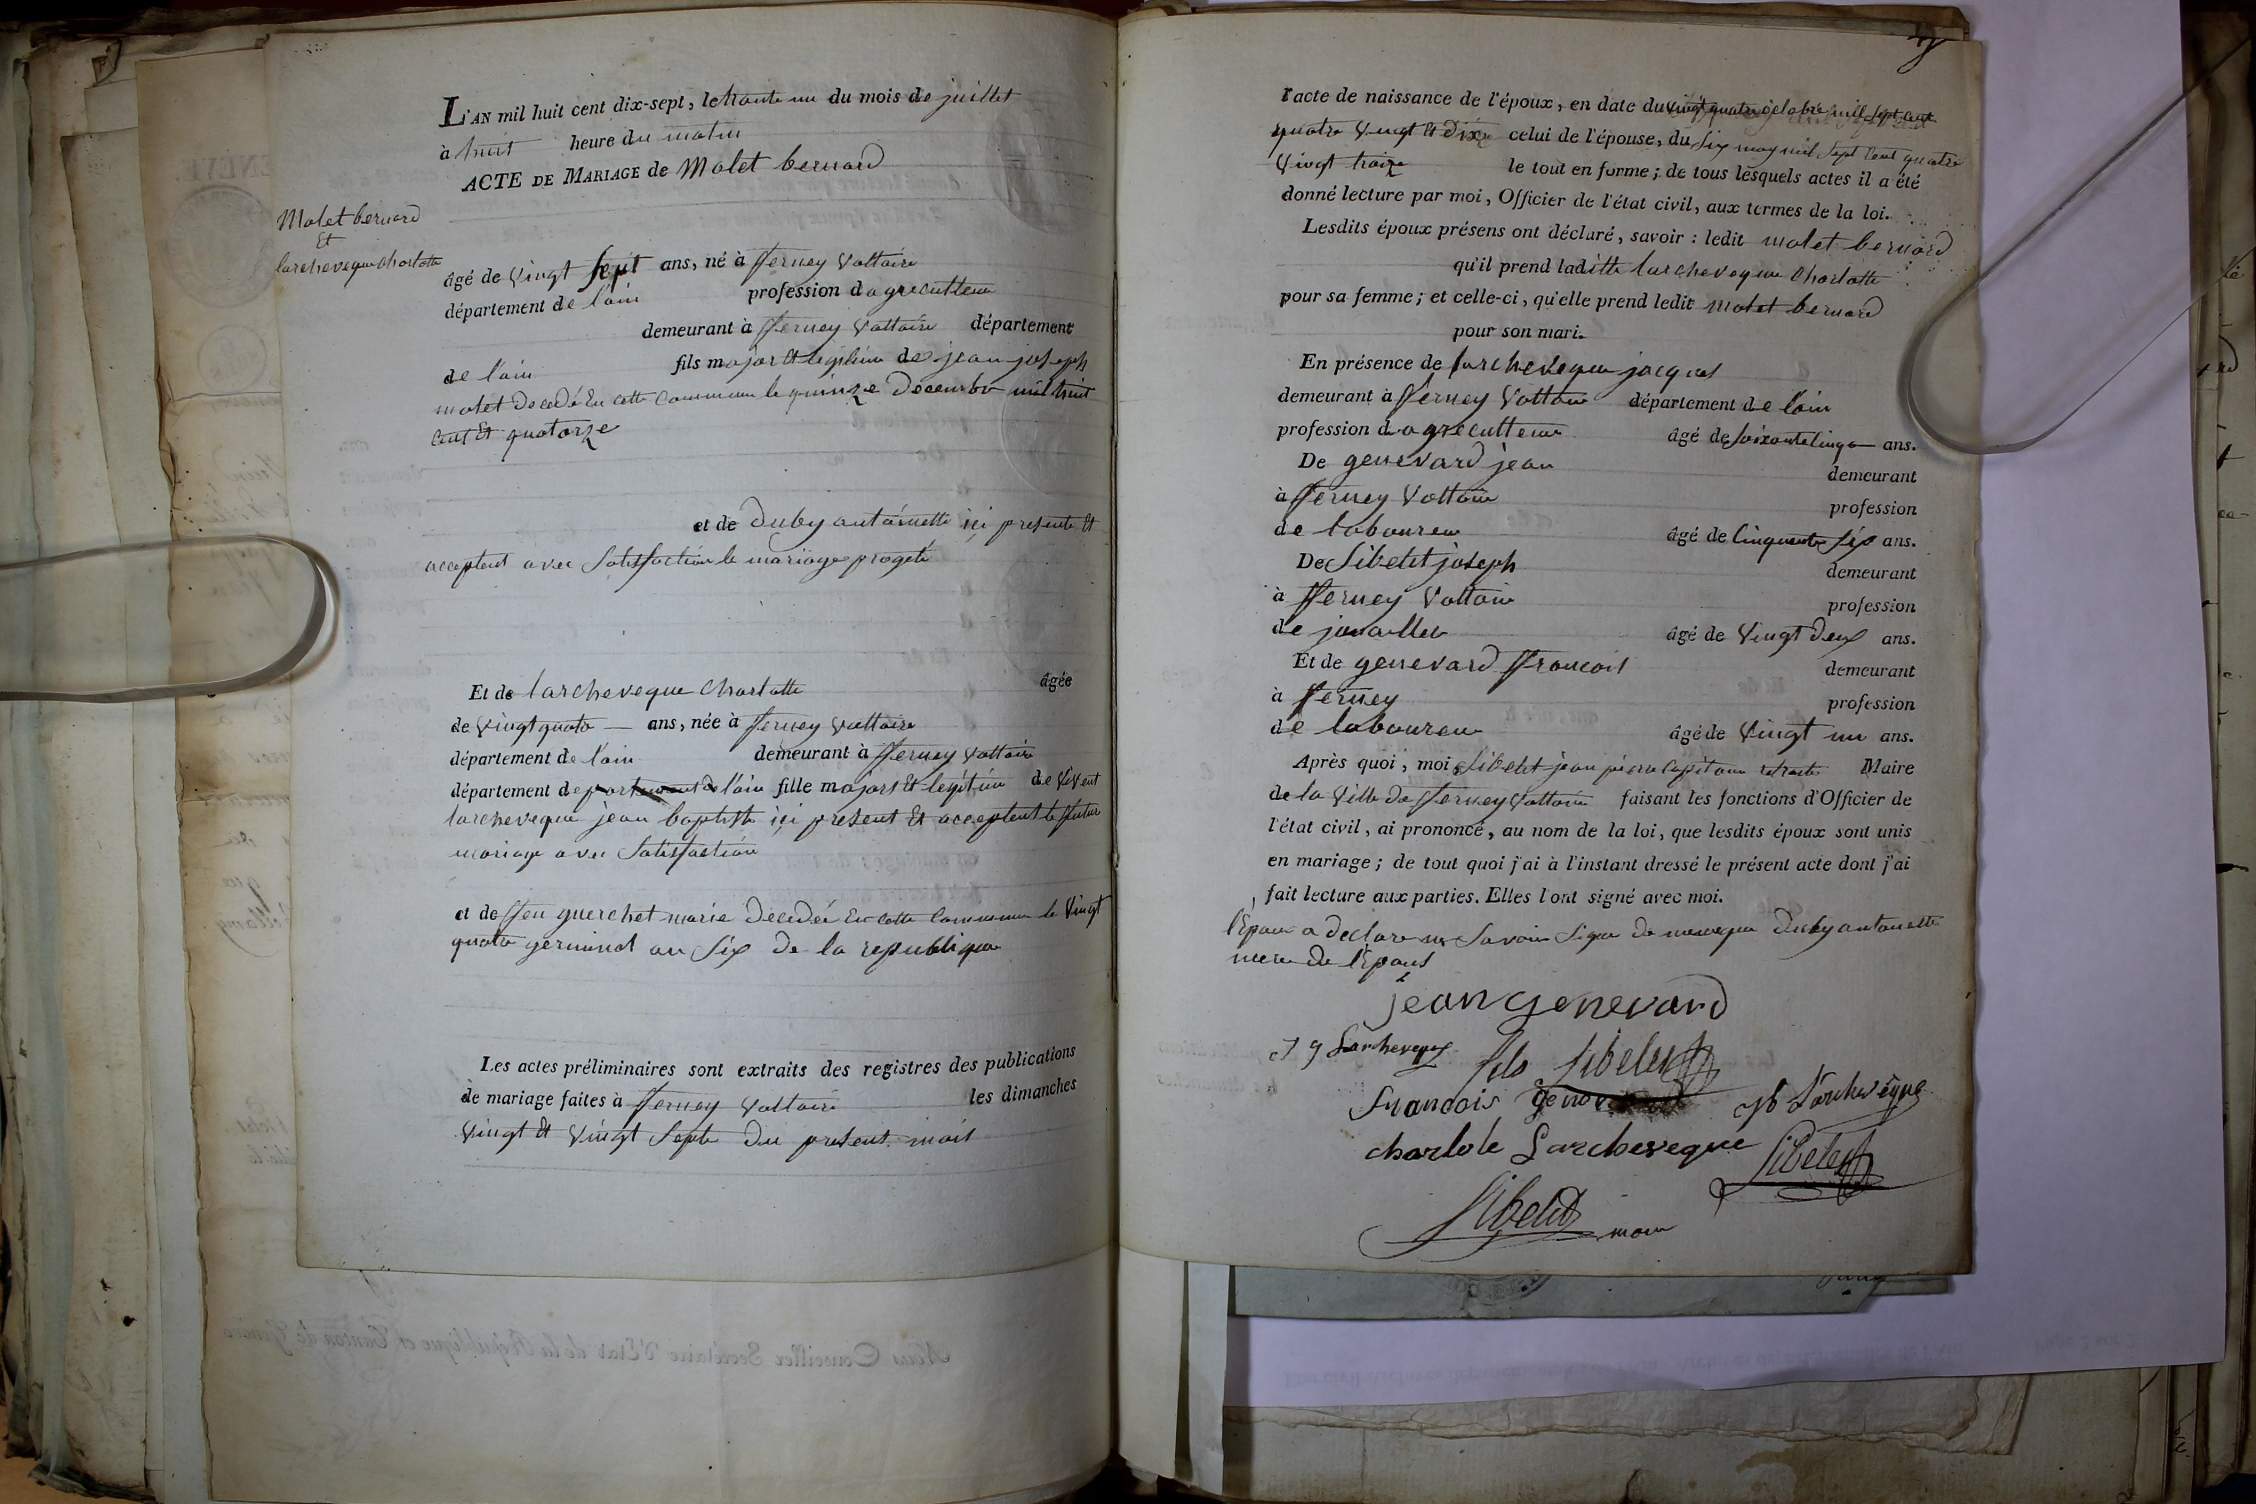 L'AN mil huit cent dix-sept, le trante un du mois de juillet
à huit heure du matin
ACTE DE MARIAGE de Molet bernard
Molet bernard
Et
larcheveque Charlotte
âgé de vingt sept ans, né à fferney Voltaire
département de l'ain profession d agreculteur
demeurant à fferney Voltaire département
de l'ain fils major Et legitime de jean joseph
molet decedé En cette Commune le quinze Décembre mil huit
Cent Et quatorze
et de Duby antoinette ici presente Et
acceptent avec Satisfaction le mariage progeté
Et de larcheveque Charlotte âgée
de vingt quatre ans, née à fferney Voltaire
département de l'ain demeurant à fferney Voltaire
département de l'ain fille majors Et legitime de Vivent
larcheveque jean baptiste ici present Et acceptent le ffutur
mariage avec Satisfaction
et de ffeu guerchet marie Decedée En cette Commune le Vingt
quatre germinal an Six de la republique
Les actes préliminaires sont extraits des registres des publications
de mariage faites à fferney Voltaire les dimanches
Vingt Et Vingt Septe du present mois
l'acte de naissance de l'époux, en date du vingt quatre octobre mill Sept cent
quatre Vingt Et dix celui de l'épouse, du Six may mil Sept Cent quatre
Vingt traize le tout en forme; de tous lesquels actes il a été
donné lecture par moi, Officier de l'état civil, aux termes de la loi.
Lesdits époux présens ont déclaré, savoir : ledit molet bernard
qu'il prend laditte larcheveque Charlotte
pour sa femme; et celle-ci, qu'elle prend ledit molet bernard
pour son mari.
En présence de larcheveque jacques
demeurant à fferney Voltaire département de l'ain
profession d agreculteur âgé de Soixante Cinq ans.
De genevard jean demeurant
à fferney Voltaire profession
de laboureur âgé de Cinquante Six ans.
De Sibelet joseph demeurant
à fferney Voltaire profession
de jouallier âgé de Vingt Deux ans.
Et de genevard ffrancois demeurant
à fferney profession
de laboureur âgé de Vingt un ans.
Après quoi, moi Sibelet jean pierre Capitaine retraite Maire
de la Ville de fferney Voltaire faisant les fonctions d'Officier de
l'état civil, ai prononcé, au nom de la loi, que lesdits époux sont unis
en mariage; de tout quoi j'ai à l'instant dressé le présent acte dont j'ai
fait lecture aux parties. Elles l'ont signé avec moi.
l'Epoux a declare ne Savoir Signe de mesme que Duby antoinette
mere de l'Epoux
jean genevard
J J Larcheveque
fils Sibelet
francois genevard
jb Larchevêque
charlote Larcheveque
Sibelet
Sibelet maire